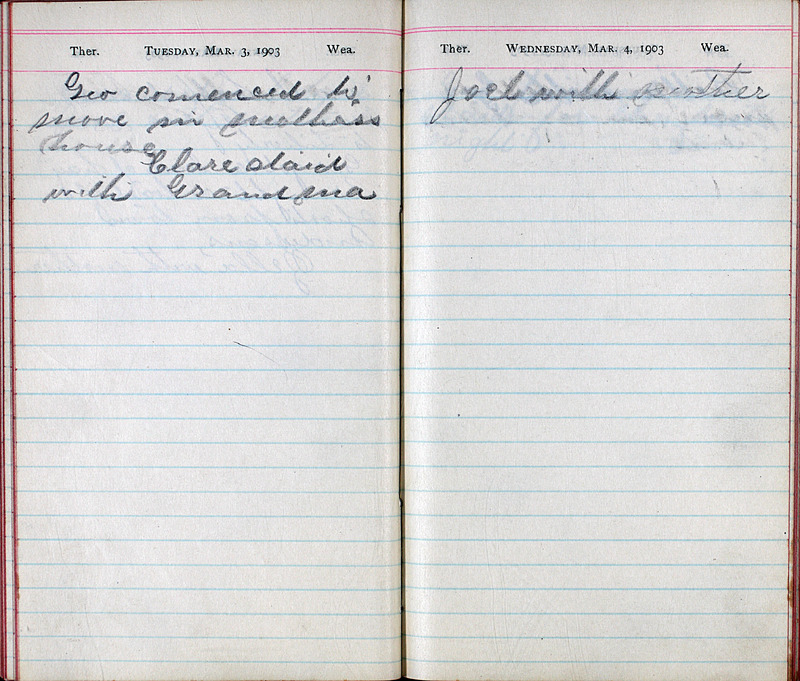 Ther. Tuesday, Mar. 3, 1903 Wea.
Geo comenced to
move in mothers
house
Clare staid
with Grandma
Ther. Wednesday, Mar. 4, 1903 Wea.
Joel with mother